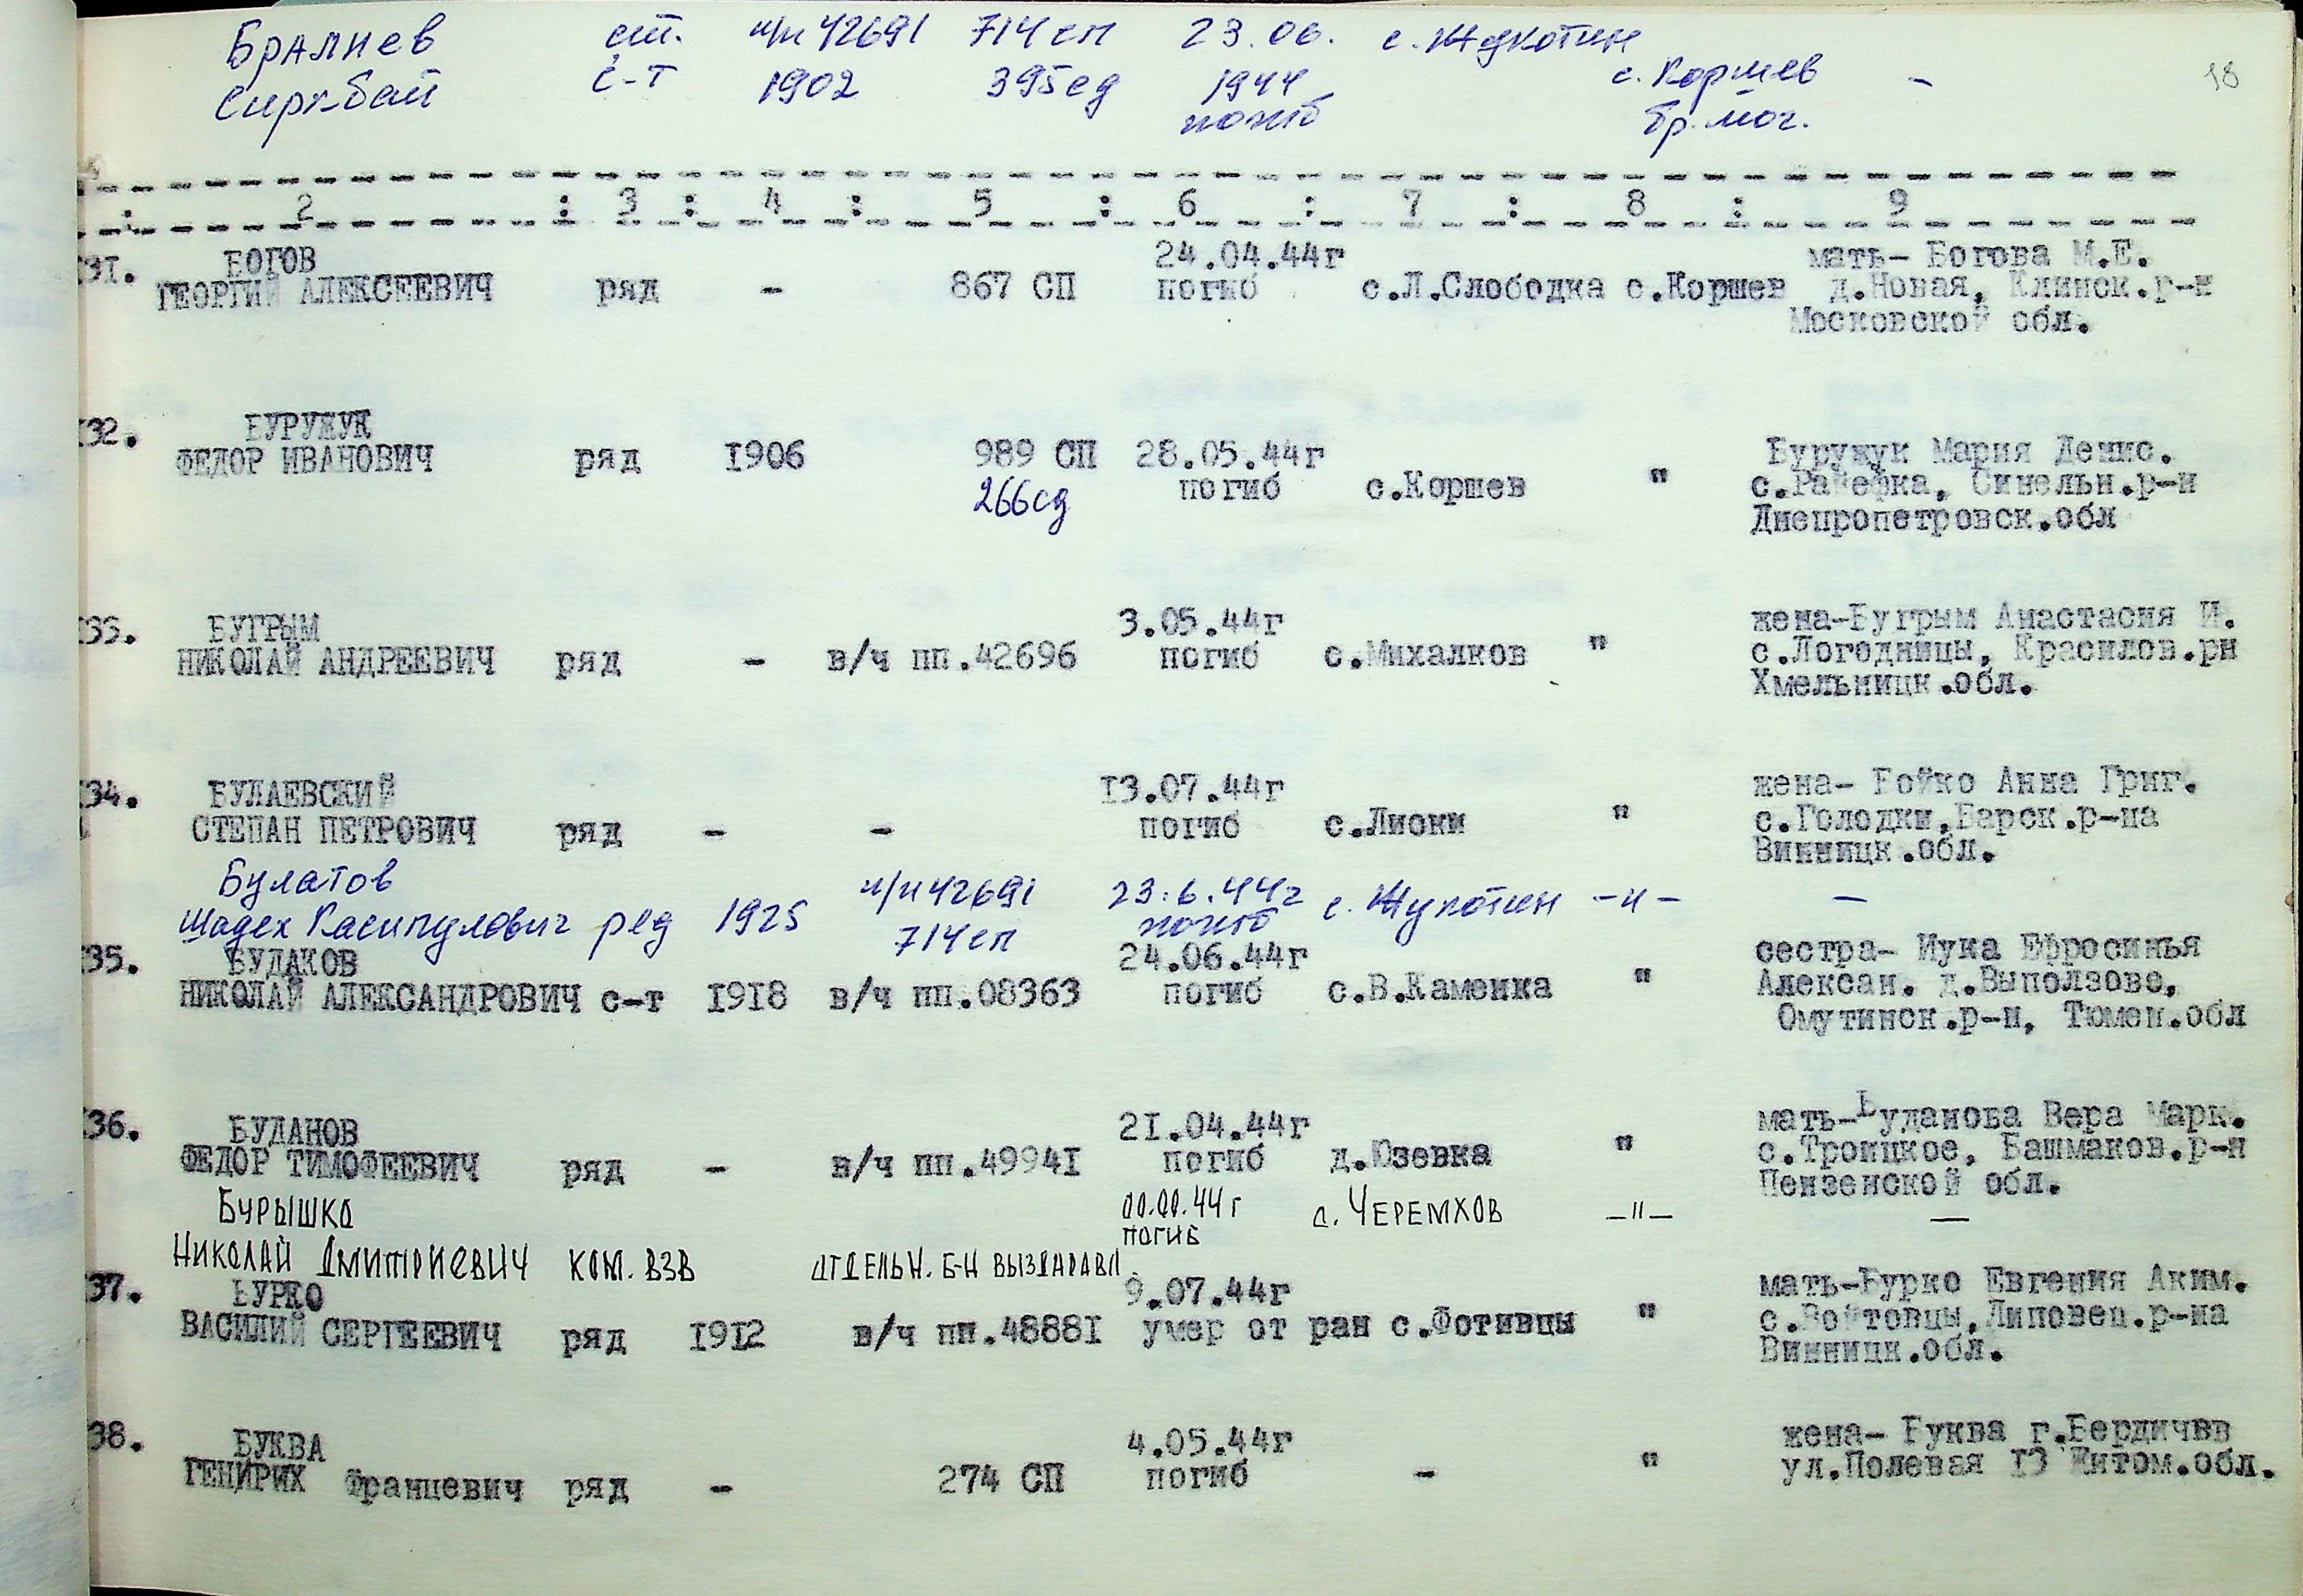 Бралиев ст. п/п 42691 714 сп 23.06. с. Жукотин
Сиркбай с-т 1902 395 сд 1944 с. Коршев - 18
погиб бр. мог.
: 2 : 3 : 4 : 5 : 6 : 7 : 8 : 9
БОГОВ 24.04.44г мать- Богова М.Е.
131. ГЕОРГИЙ АЛЕКСЕЕВИЧ ряд - 867 СП погиб с.Л.Слободка с.Коршев д.Новая, Клинск.р-н
Московской обл.
132. БУРУЖУК
ФЕДОР ИВАНОВИЧ ряд 1906 989 СП 28.05.44г Буружук Мария Денис.
266сд погиб с.Коршев " с.Раевка, Синельн.р-н
Днепропетровск.обл
133. БУГРЫМ 3.05.44г жена-Бугрым Анастасия И.
НИКОЛАЙ АНДРЕЕВИЧ ряд - в/ч пп.42696 погиб с.Михалков " с.Логодницы, Красилов.рн
Хмельницк.обл.
134. БУЛАЕВСКИЙ 13.07.44г жена- Бойко Анна Григ.
СТЕПАН ПЕТРОВИЧ ряд - - погиб с.Лиски " с.Голодки,Барск.р-на
Винницк.обл.
Булатов п/п 42691 23.6.44г с. Жукотин -"- -
Шадех Касипулович ряд 1925 714 сп погиб
135. БУДАКОВ 24.06.44г сестра- Мука Ефросинья
НИКОЛАЙ АЛЕКСАНДРОВИЧ с-т 1918 в/ч пп.08363 погиб с.В.Каменка " Алексан. д.Выползово,
Омутинск.р-н, Тюмен.обл
136. БУДАНОВ 21.04.44г мать-Буданова Вера Марк.
ФЕДОР ТИМОФЕЕВИЧ ряд - в/ч пп.49941 погиб д.Юзевка " с.Троицкое, Башмаков.р-н
Пензенской обл.
БУРЫШКО 00.00.44г с. ЧЕРЕМХОВ -"- -
погиб
НИКОЛАЙ ДМИТРИЕВИЧ КОМ. ВЗВ ОТДЕЛЬН. Б-Н ВЫЗДАРАВЛ.
137. БУРКО 9.07.44г мать-Бурко Евгения Аким.
ВАСИЛИЙ СЕРГЕЕВИЧ ряд 1912 в/ч пп.48881 умер от ран с.Фотивцы " с.Войтовцы,Липовец.р-на
Винницк.обл.
138. БУКВА 4.05.44г жена- Буква г.Бердичвв
ГЕНИРИХ Францевич ряд - 274 СП погиб - " ул.Полевая 13 Житом.обл.